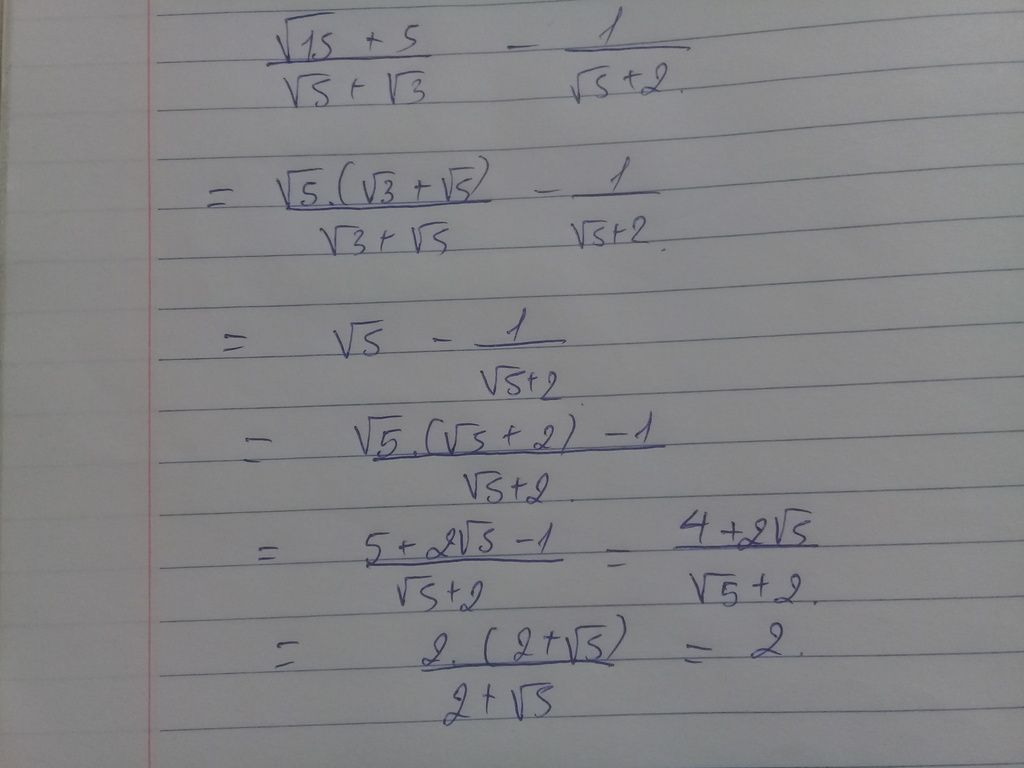 (√15 + 5)/(√5 + √3) - 1/(√5 + 2).
= √5.(√3 + √5)/(√3 + √5) - 1/(√5 + 2).
= √5 - 1/(√5 + 2)
= (√5.(√5 + 2) - 1)/(√5 + 2).
= (5 + 2√5 - 1)/(√5 + 2) = (4 + 2√5)/(√5 + 2).
= 2.(2 + √5)/(2 + √5) = 2.